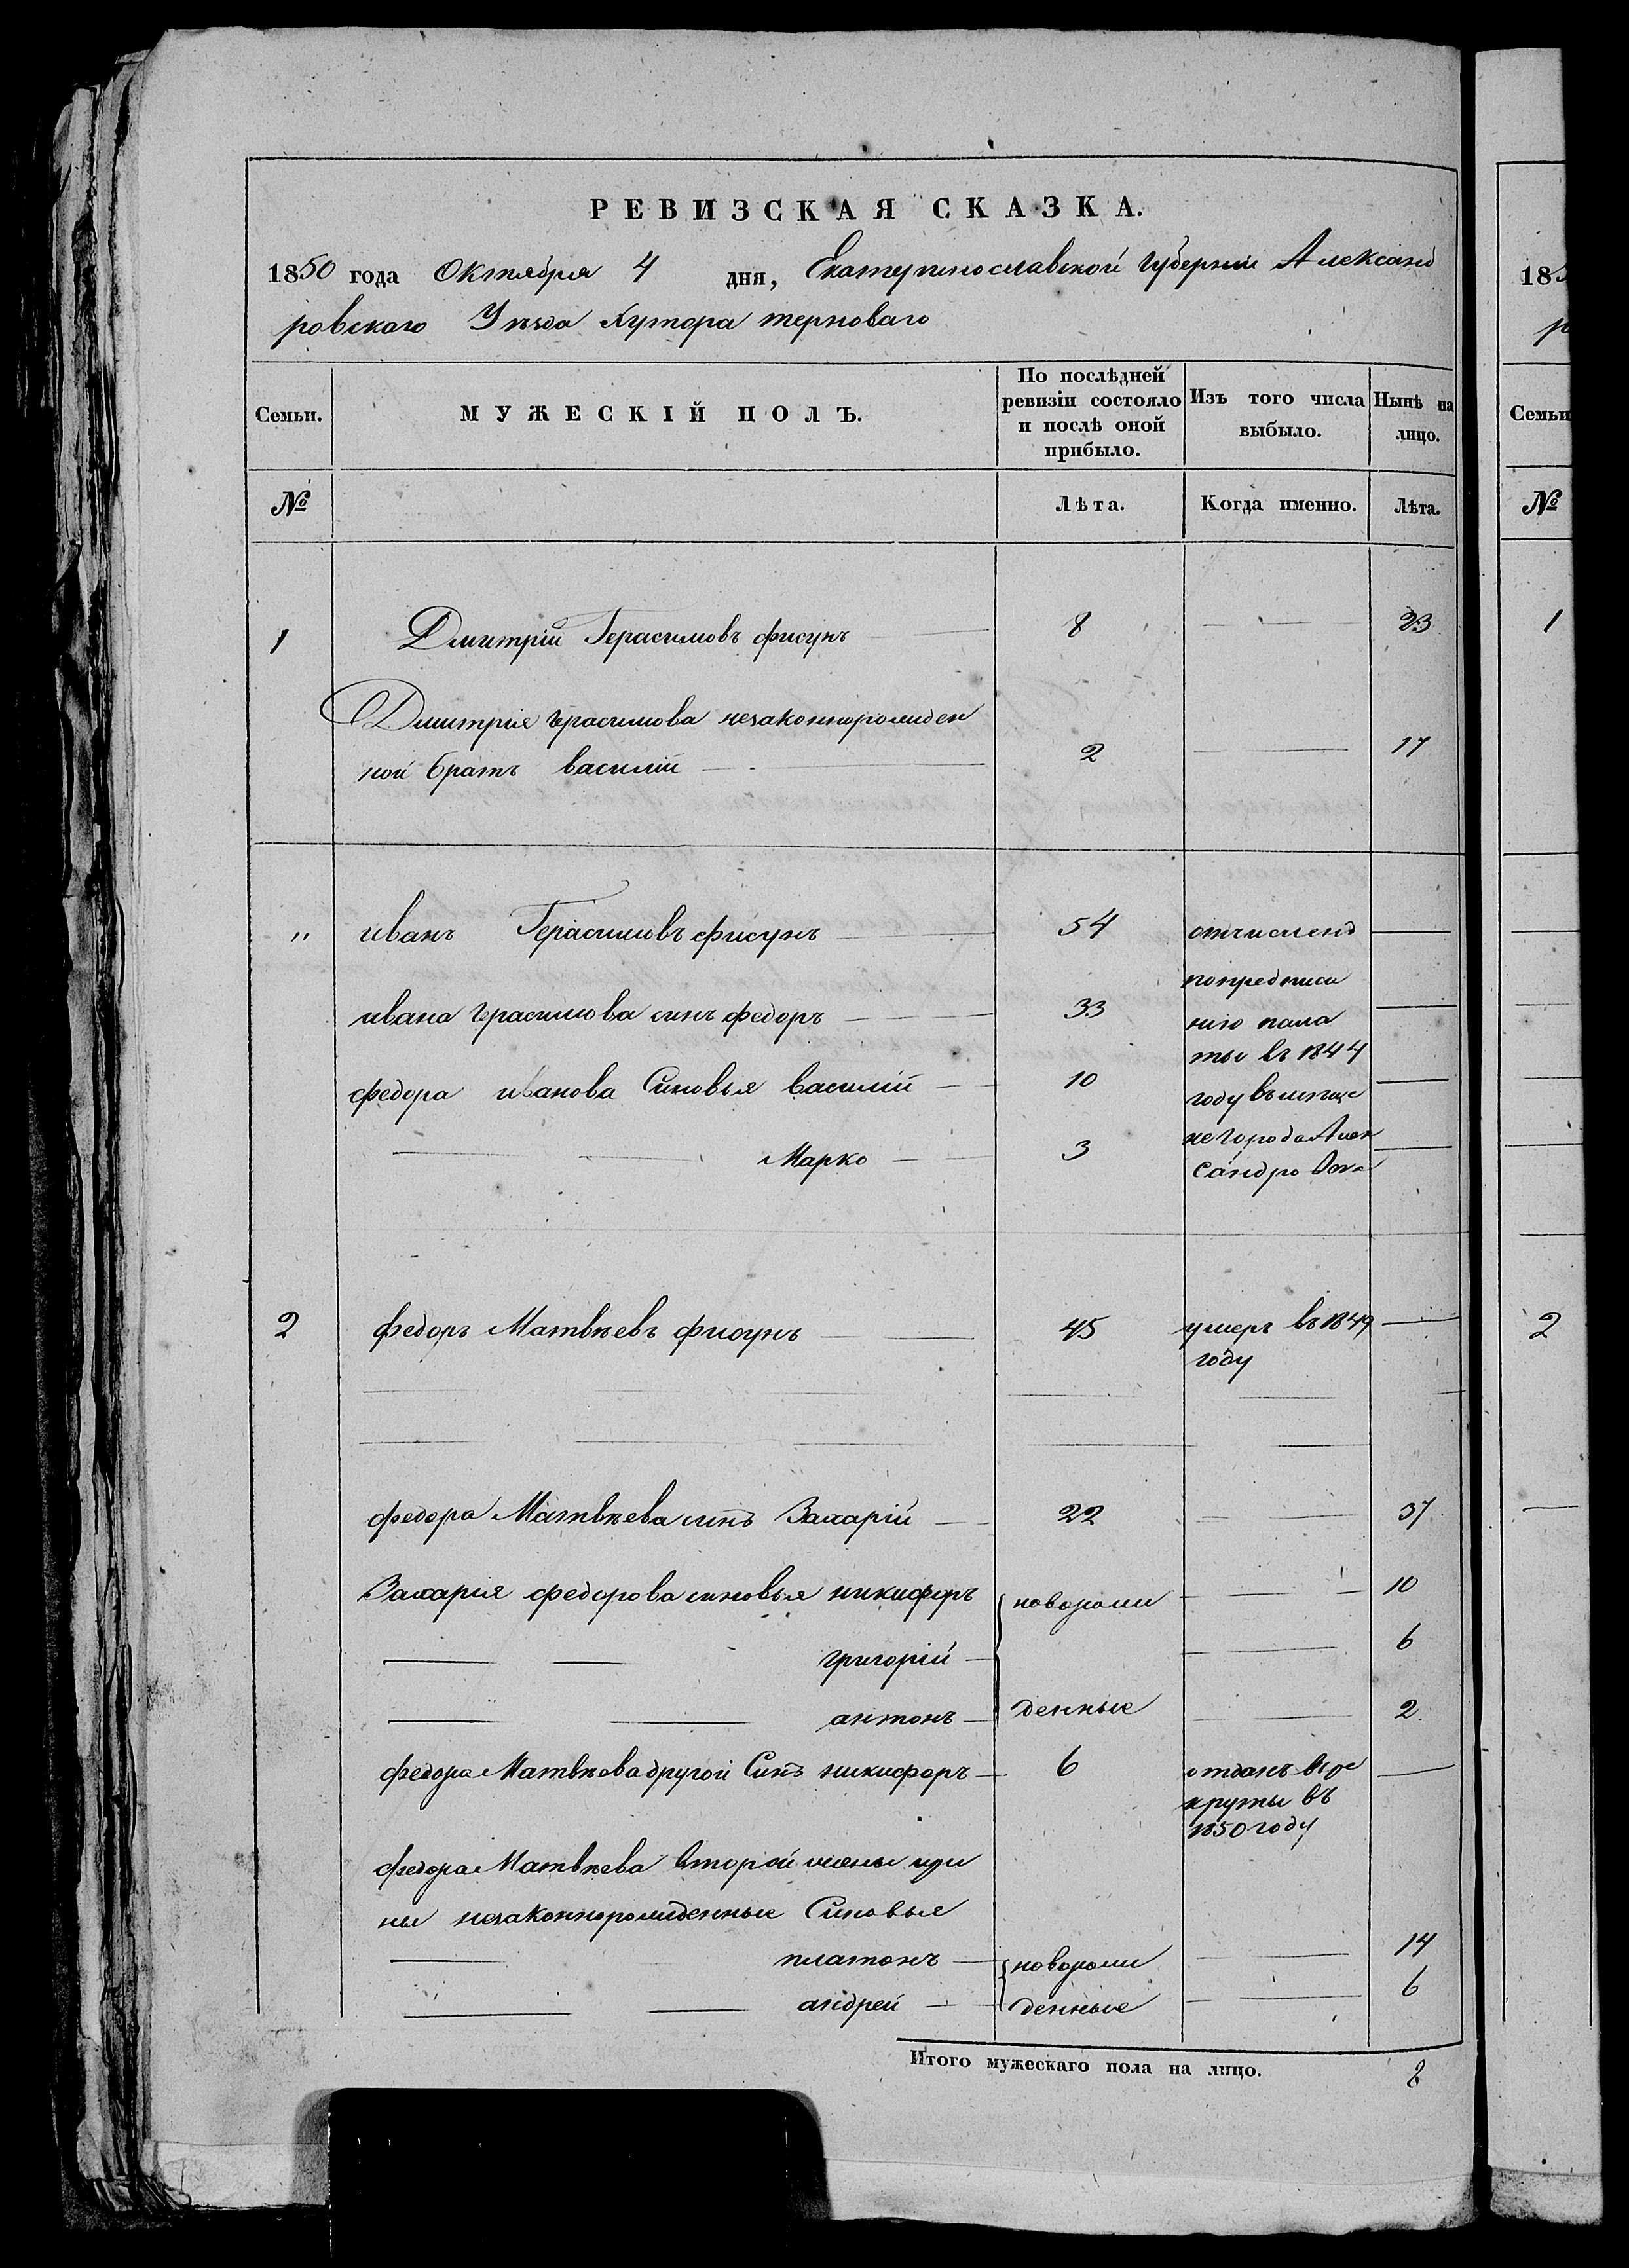 РЕВИЗСКАЯ СКАЗКА.
1850 года Октября 4 дня, Екатеринославской губернии Александ
ровскаго Уѣзда Хутора терноваго
Семьи. МУЖЕСКІЙ ПОЛЪ. По послѣдней ревизіи состояло и послѣ оной прибыло. Изъ того числа выбыло. Нынѣ на лицо.
№ Лѣта. Когда именно. Лѣта.
1 Дмитрій Герасимовъ фисунъ 8 23
Дмитрія герасимова незаконнорожден
ной братъ василій 2 17
" иванъ Герасимовъ фисунъ 54 отчисленъ
попредписа
ивана герасимова синъ федоръ 33 нію пала
ты въ 1844
федора иванова Синовья василій 10 году въ меща
не города Алек
Марко 3 сандровка
2 федоръ Матвѣевъ фисунъ 45 умеръ въ 1849
году
федора Матвѣева синъ Захарій 22 37
Захарія федорова синовья никифоръ новорож 10
григорій 6
антонъ денные 2
федора Матвѣева другой Синъ никифоръ 6 отданъ въ ре
круты въ
1850 году
федора Матвѣева второй жены ири
ны незаконнорожденные Синовья
платонъ новорож 14
андрей денные 6
Итого мужескаго пола на лицо. 8
185
р
Семьи
№
1
2